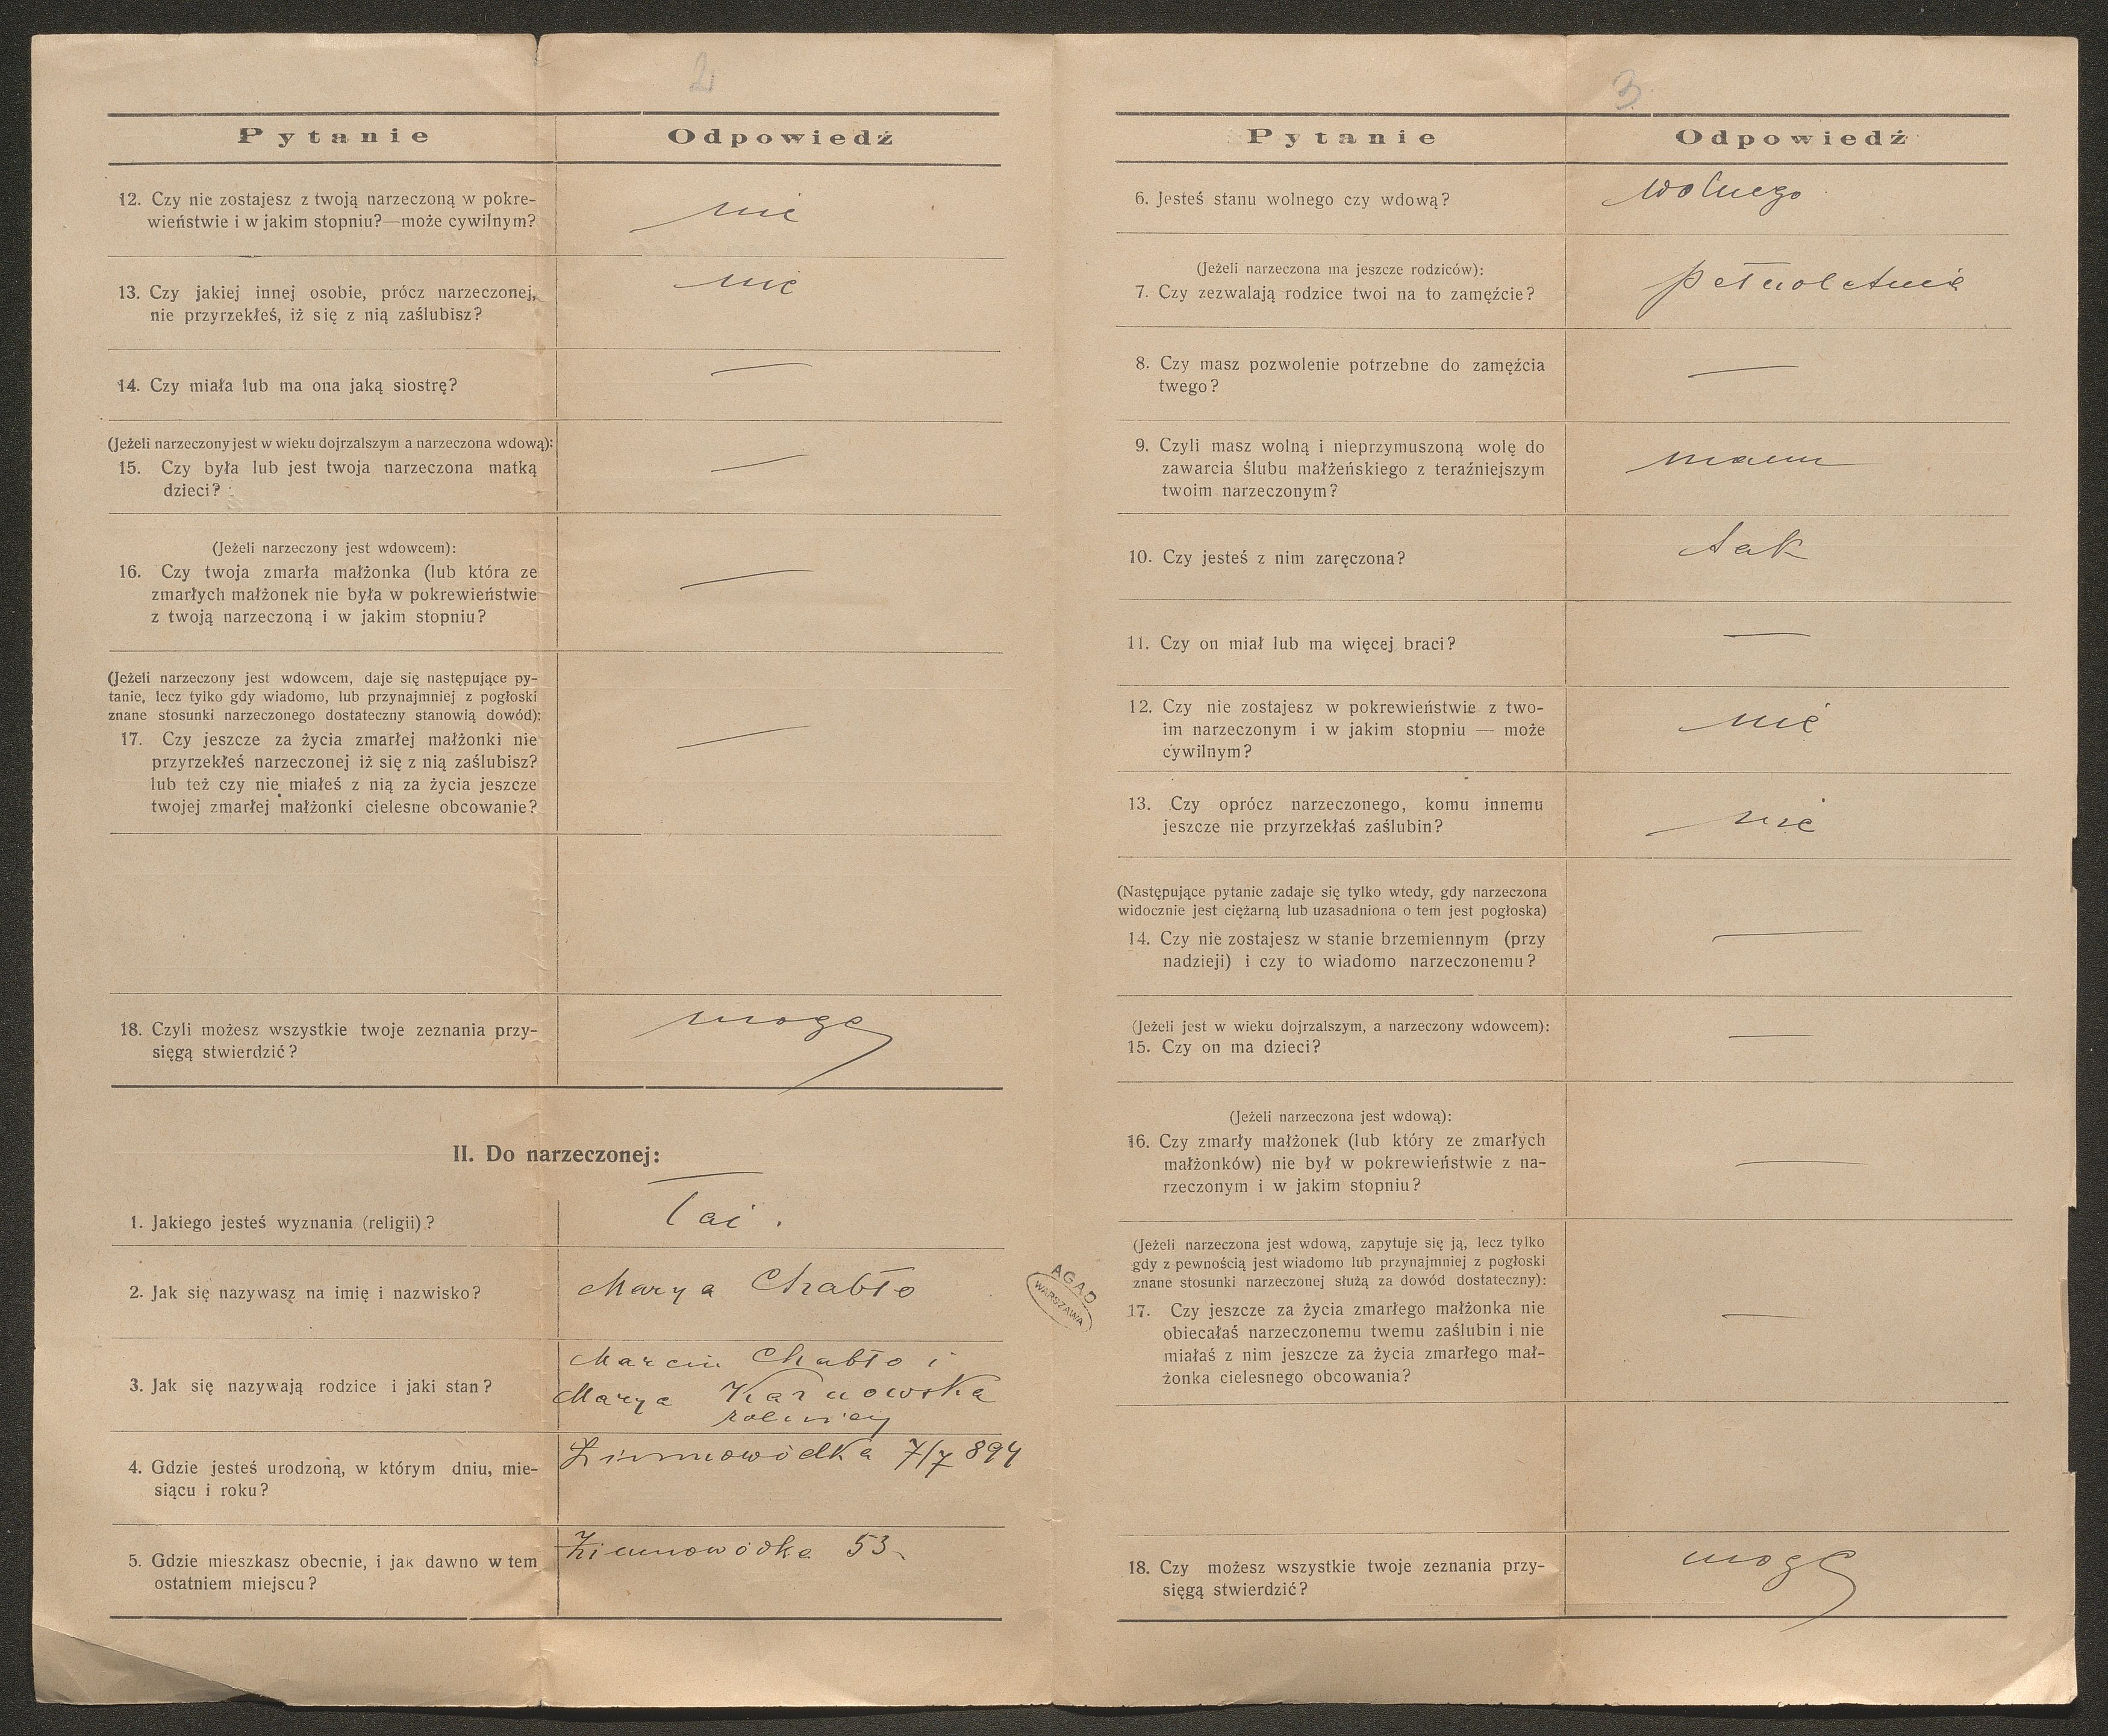 2
Pytanie Odpowiedź
12. Czy nie zostajesz z twoją narzeczoną w pokre-
wieństwie i w jakim stopniu?—może cywilnym?
nie
13. Czy jakiej innej osobie, prócz narzeczonej,
nie przyrzekłeś, iż się z nią zaślubisz?
nie
14. Czy miała lub ma ona jaką siostrę?
—
(Jeżeli narzeczony jest w wieku dojrzalszym a narzeczona wdową):
15. Czy była lub jest twoja narzeczona matką
dzieci?
—
(Jeżeli narzeczony jest wdowcem):
16. Czy twoja zmarła małżonka (lub która ze
zmarłych małżonek nie była w pokrewieństwie
z twoją narzeczoną i w jakim stopniu?
—
(Jeżeli narzeczony jest wdowcem, daje się następujące py-
tanie, lecz tylko gdy wiadomo, lub przynajmniej z pogłoski
znane stosunki narzeczonego dostateczny stanowią dowód):
17. Czy jeszcze za życia zmarłej małżonki nie
przyrzekłeś narzeczonej iż się z nią zaślubisz?
lub też czy nie miałeś z nią za życia jeszcze
twojej zmarłej małżonki cielesne obcowanie?
—
18. Czyli możesz wszystkie twoje zeznania przy-
sięgą stwierdzić?
mogę
II. Do narzeczonej:
1. Jakiego jesteś wyznania (religii)?
łać.
2. Jak się nazywasz na imię i nazwisko?
Marya Chabło
3. Jak się nazywają rodzice i jaki stan?
Marcin Chabło i
Marya Karnowska
rolnicy
4. Gdzie jesteś urodzoną, w którym dniu, mie-
siącu i roku?
Zimnowódka 7/7 894
5. Gdzie mieszkasz obecnie, i jak dawno w tem
ostatniem miejscu?
Zimnowódka 53
AGAD
WARSZAWA
3
Pytanie Odpowiedź
6. Jesteś stanu wolnego czy wdową?
wolnego
(Jeżeli narzeczona ma jeszcze rodziców):
7. Czy zezwalają rodzice twoi na to zamęźcie?
pełnoletnia
8. Czy masz pozwolenie potrzebne do zamęźcia
twego?
—
9. Czyli masz wolną i nieprzymuszoną wolę do
zawarcia ślubu małżeńskiego z teraźniejszym
twoim narzeczonym?
mam
10. Czy jesteś z nim zaręczona?
tak
11. Czy on miał lub ma więcej braci?
—
12. Czy nie zostajesz w pokrewieństwie z two-
im narzeczonym i w jakim stopniu — może
cywilnym?
nie
13. Czy oprócz narzeczonego, komu innemu
jeszcze nie przyrzekłaś zaślubin?
nie
(Następujące pytanie zadaje się tylko wtedy, gdy narzeczona
widocznie jest ciężarną lub uzasadniona o tem jest pogłoska)
14. Czy nie zostajesz w stanie brzemiennym (przy
nadzieji) i czy to wiadomo narzeczonemu?
—
(Jeżeli jest w wieku dojrzalszym, a narzeczony wdowcem):
15. Czy on ma dzieci?
—
(Jeżeli narzeczona jest wdową):
16. Czy zmarły małżonek (lub który ze zmarłych
małżonków) nie był w pokrewieństwie z na-
rzeczonym i w jakim stopniu?
—
(Jeżeli narzeczona jest wdową, zapytuje się ją, lecz tylko
gdy z pewnością jest wiadomo lub przynajmniej z pogłoski
znane stosunki narzeczonej służą za dowód dostateczny):
17. Czy jeszcze za życia zmarłego małżonka nie
obiecałaś narzeczonemu twemu zaślubin i nie
miałaś z nim jeszcze za życia zmarłego mał-
żonka cielesnego obcowania?
—
18. Czy możesz wszystkie twoje zeznania przy-
sięgą stwierdzić?
mogę